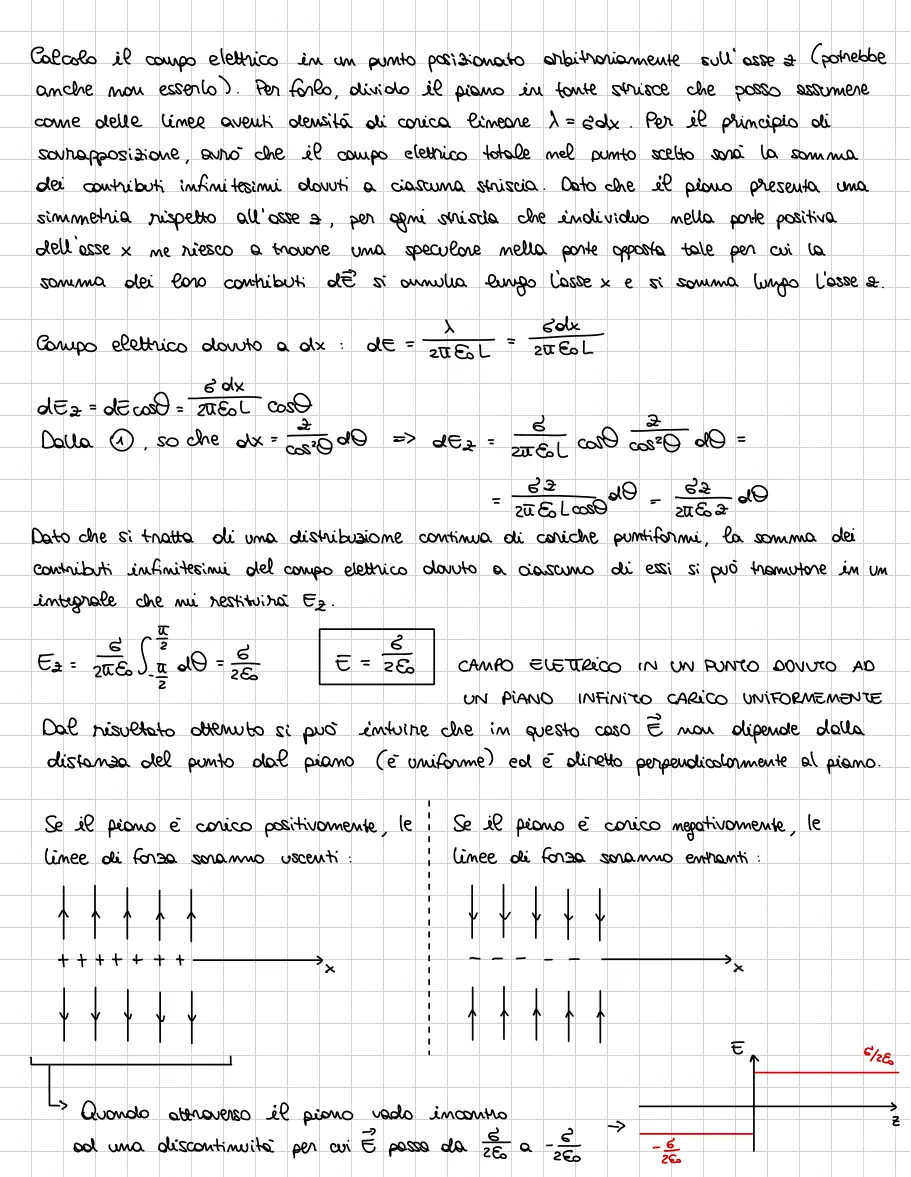 Calcolo il campo elettrico in un punto posizionato arbitrariamente sull'asse z (potrebbe
anche non esserlo). Per farlo, divido il piano in tante strisce che posso assumere
come delle linee aventi densità di carica lineare λ = σdx. Per il principio di
sovrapposizione, avrò che il campo elettrico totale nel punto scelto sarà la somma
dei contributi infinitesimi dovuti a ciascuna striscia. Dato che il piano presenta una
simmetria rispetto all'asse z, per ogni striscia che individuo nella parte positiva
dell'asse x ne riesco a trovare una speculare nella parte opposta tale per cui la
somma dei loro contributi dE⃗ si annulla lungo l'asse x e si somma lungo l'asse z.
Campo elettrico dovuto a dx : dE = λ/(2πε₀L) = σdx/(2πε₀L)
dEz = dE cosθ = σdx/(2πε₀L) cosθ
Dalla ①, so che dx = z/cos²θ dθ => dEz = σ/(2πε₀L) cosθ z/cos²θ dθ =
= σz/(2πε₀L cosθ) dθ = σz/(2πε₀z) dθ
Dato che si tratta di una distribuzione continua di cariche puntiformi, la somma dei
contributi infinitesimi del campo elettrico dovuto a ciascuno di essi si può tramutare in un
integrale che mi restituirà Ez.
Ez = σ/(2πε₀) ∫_{-π/2}^{π/2} dθ = σ/(2ε₀) E = σ/(2ε₀) CAMPO ELETTRICO IN UN PUNTO DOVUTO AD
UN PIANO INFINITO CARICO UNIFORMEMENTE
Dal risultato ottenuto si può intuire che in questo caso E⃗ non dipende dalla
distanza del punto dal piano (è uniforme) ed è diretto perpendicolarmente al piano.
Se il piano è carico positivamente, le
linee di forza saranno uscenti :
+ + + + + + + x
Se il piano è carico negativamente, le
linee di forza saranno entranti :
- - - - - x
Quando attraverso il piano vado incontro
ad una discontinuità per cui E⃗ passa da σ/(2ε₀) a -σ/(2ε₀) →
E
σ/2ε₀
z
-σ/(2ε₀)